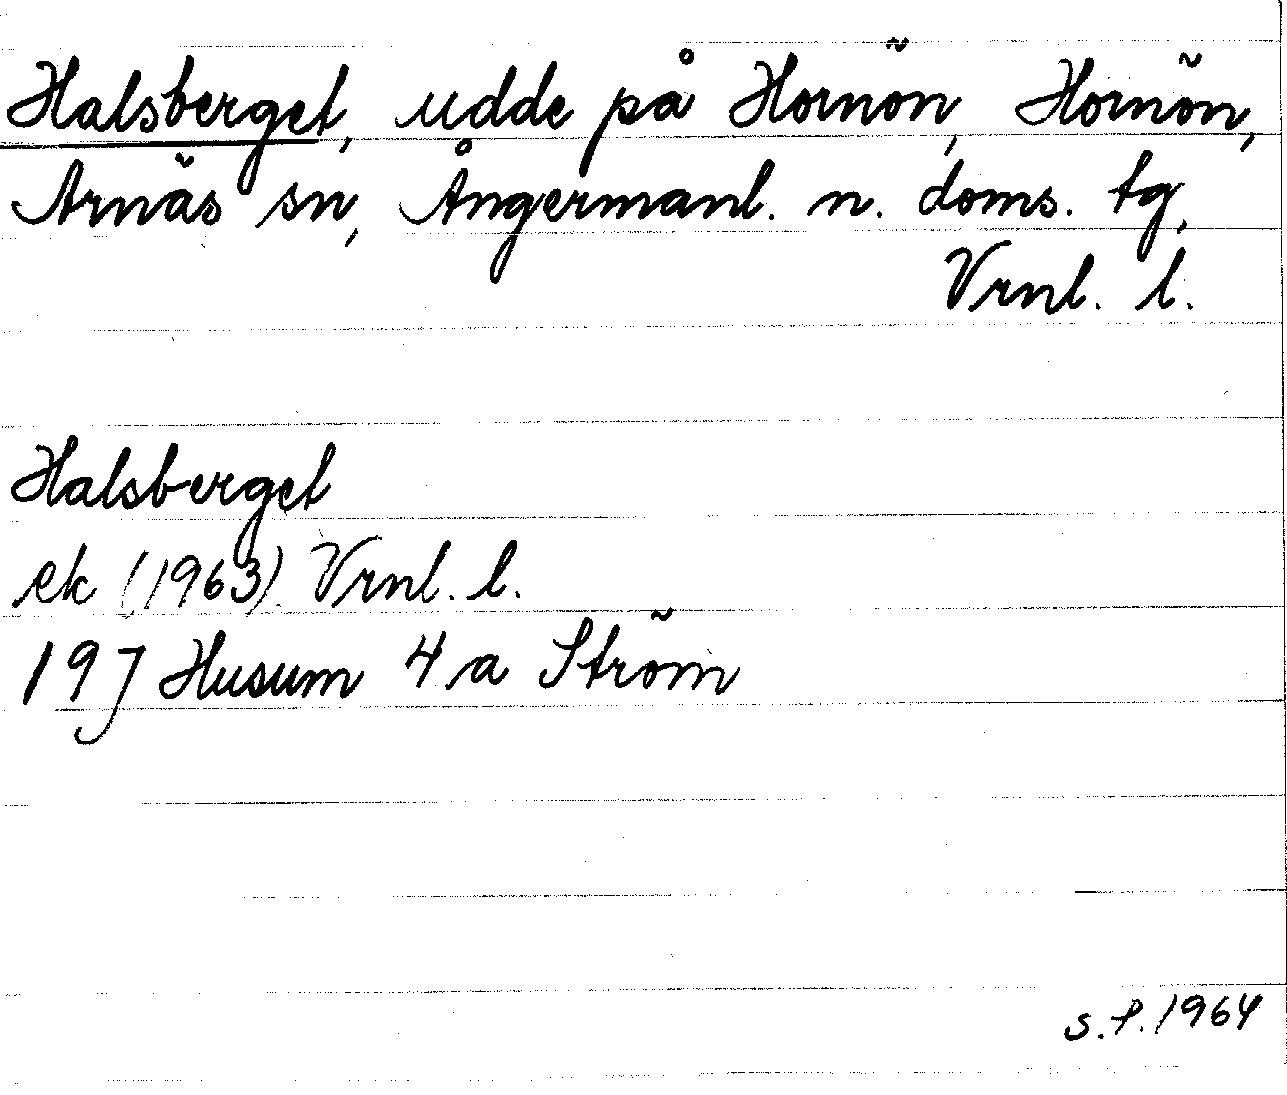 Halsberget, udde på Hornön, Hornön,
Arnäs sn, Ångermanl. n. doms. tg,
Vrnl. l.
Halsberget
ek (1963) Vrnl. l.
19J Husum 4 a Ström
s.P. 1964